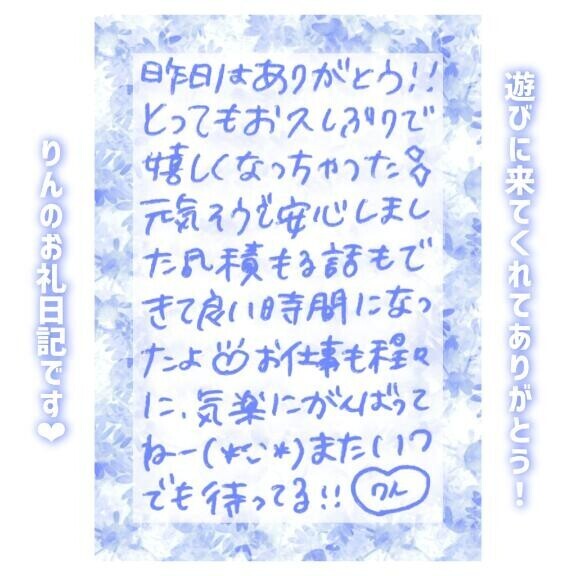 遊びに来てくれてありがとう!
昨日はありがとう!!
とってもお久しぶりで
嬉しくなっちゃった
元気そうで安心しまし
た♬積もる話もで
きて良い時間になっ
たよ お仕事も程々
に、気楽にがんばって
ねー(*ˊᵕˋ*)またいつ
でも待ってる!!
りん
りんのお礼日記です❤